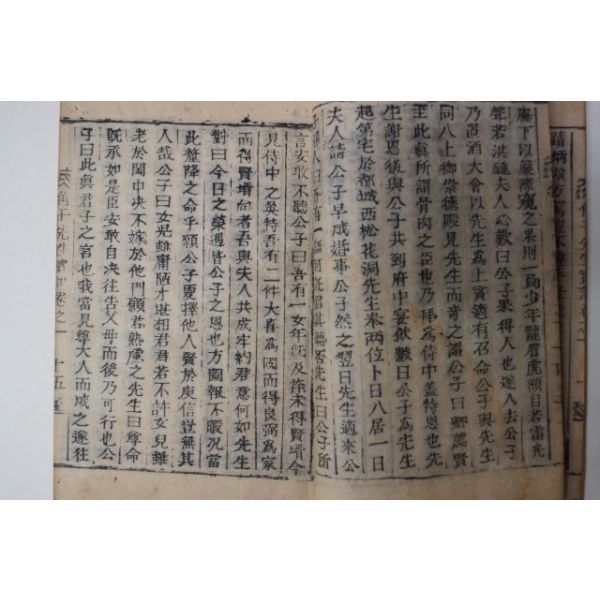 廉下以簾隙窺之果則一員少年龍眉虎頭目若雷光
聲若洪鍾夫人心歡曰公子果得人也遂入去公子
乃置酒大會以先生爲上賓適有召命公子與先生
同八上御崇德殿見先生而奇之謂公子曰卿薦賢
至此眞所謂骨肉之臣也乃拜爲侍中盖特恩也先
生謝恩後與公子共到府中宴飮數日公子爲先生
起第宅於都城西松花洞先生奉兩位卜日八居一日
夫人請公子早成婚事公子然之翌日先生適來公
言安敢不聽公子曰吾有一女年旣及筓未得賢壻今
見侍中之英特吾有二件大喜爲國而得良弼爲家
而得賢壻向者吾與夫人共成牢約君意何如先生
對曰今日之榮遇皆公子之恩也方圖報不暇况當
此釐降之命乎願公子更擇他人賢於庾信豈無其
人哉公子曰女兒雖庸陋才堪扭君君若不許女兒雖
老於閨中决不嫁於他門願君熟慮之先生曰尊命
旣承如是臣安敢自决往告父母而後乃可行也公
子曰此眞君子之言也我當見尊大人而成之遂往
卷之一 十五